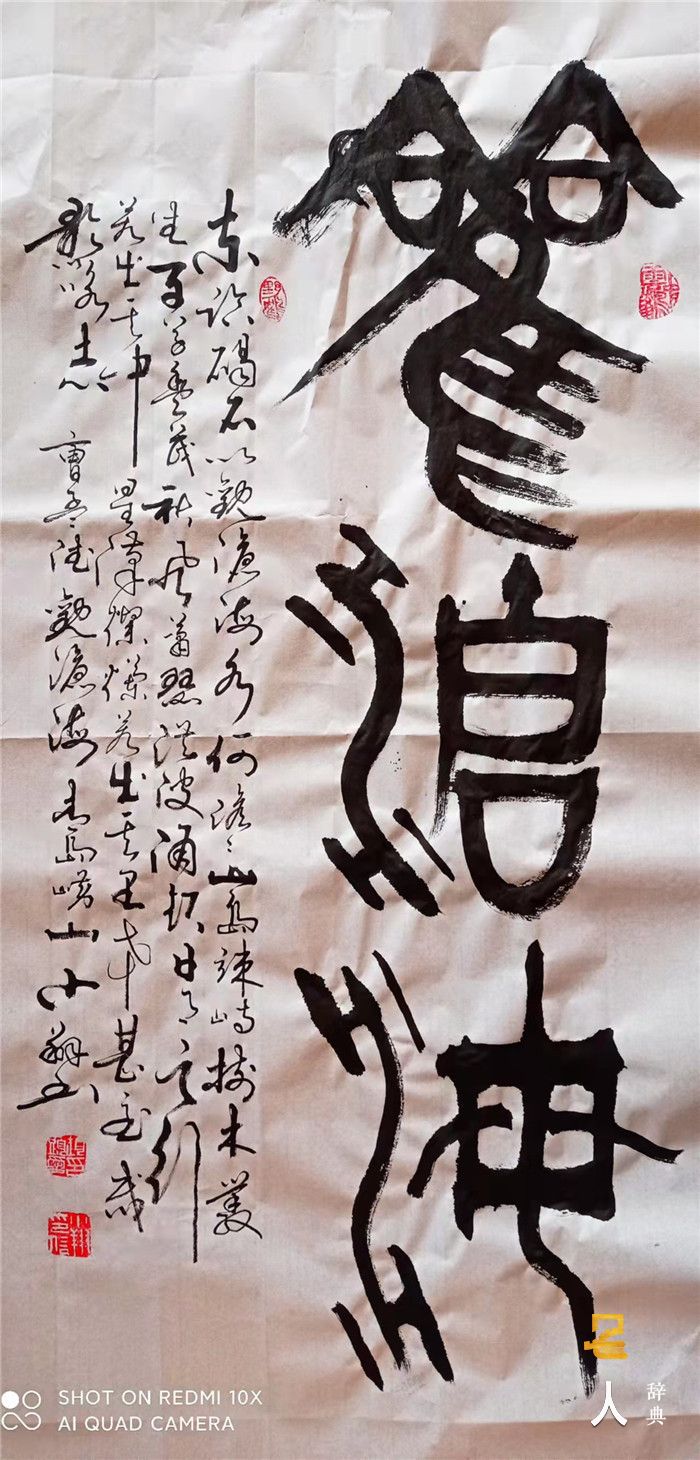 觀滄海
东临碣石以觀滄海水何澹〻山島竦峙樹木叢
生百草豐茂秋风萧瑟洪波涌起日月之行
若出其中星漢燦爛若出其里幸甚至哉
歌以咏志 曹孟德觀滄海 青島崂山小翔书
SHOT ON REDMI 10X
AI QUAD CAMERA
人
辞典